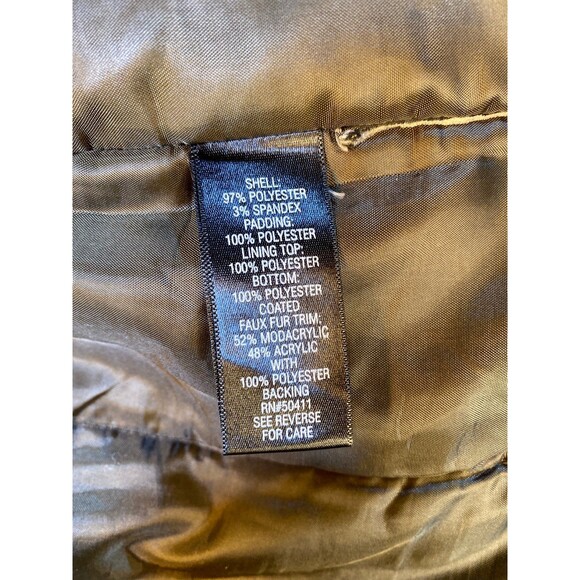 SHELL:
97% POLYESTER
3% SPANDEX
PADDING:
100% POLYESTER
LINING TOP:
100% POLYESTER
BOTTOM:
100% POLYESTER
COATED
FAUX FUR TRIM:
52% MODACRYLIC
48% ACRYLIC
WITH
100% POLYESTER
BACKING
RN#50411
SEE REVERSE
FOR CARE